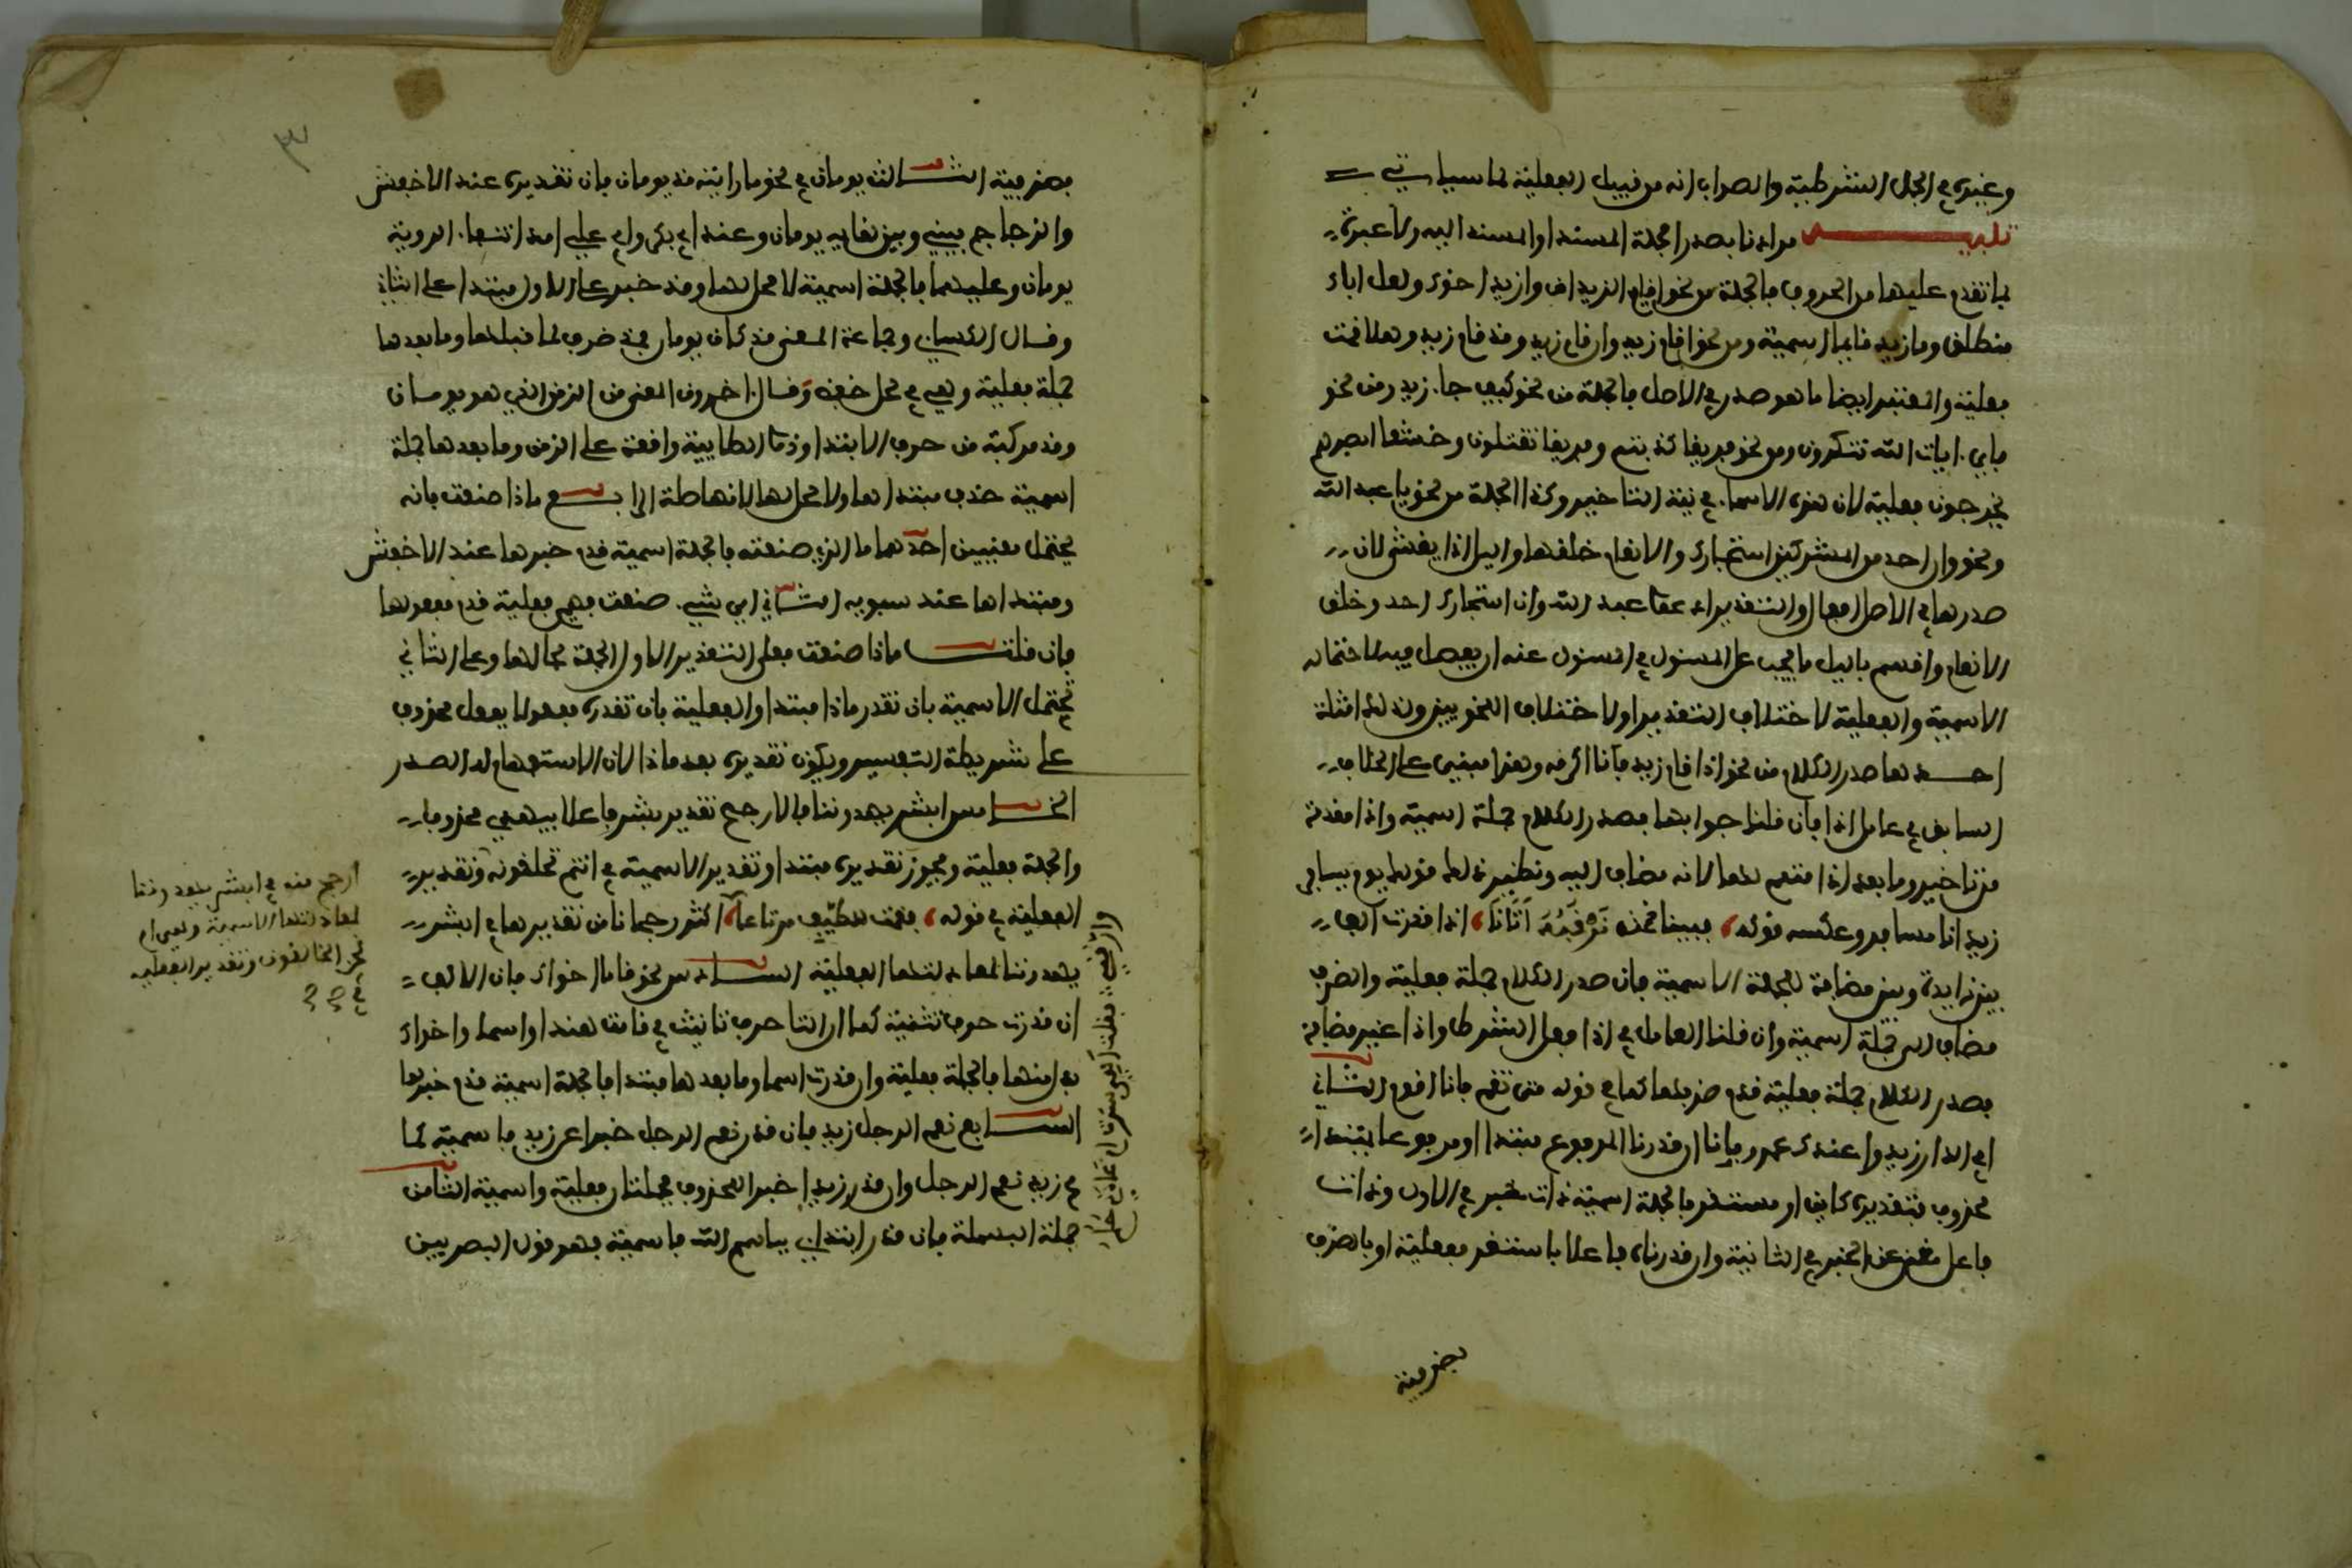 وغيره في الجمل الشرطية والصواب انه من قبيل الفعلية لما سياتي
تنبيه مرادنا بصدر الجملة المسند او المسند اليه ولا عبرة
بما تقدم عليها من الحروف فالجملة من نحو اقايم الزيدان وازيد اخوك ولعل اباك
منطلق وما زيد قايما اسمية ومن نحو اقام زيد وان قام زيد وقد قام زيد وهلا قمت
فعلية والمعتبر ايضا ما هو صدر في الاصل فالجملة من نحو كيف جاء زيد ومن نحو
فاي ءايات الله تنكرون ومن نحو فريقا كذبتم وفريقا تقتلون وخشعا ابصرهم
يخرجون فعلية لان هذه الاسماء في نية التاخير وكذا الجملة من نحو يا عبد الله
ونحو وان احد من المشركين استجارك والانعام خلقها واليل اذا يغشى لان
صدرها في الاصل افعال والتقدير ادعوا عبد الله وان استجارك احد وخلق
الانعام واقسم باليل ما يجب على المسئول في المسئول عنه ان يفصل فيه لاحتماله
الاسمية والفعلية لاختلاف التقدير او لاختلاف النحويين ولذلك امثلة
احدها صدر الكلام من نحو اذا قام زيد فانا اكرمه وهذا مبني على الخلاف
السابق في عامل اذا فان قلنا جوابها فصدر الكلام جملة اسمية واذا مقدمة
من تاخير وما بعد اذا متمم لها لانه مضاف اليه ونظير ذلك قولك يوم يسافر
زيد انا مسافر وعكسه قوله فبينا نحن نرقبه اتانا اذا قدرت الف
بين زايدة وبين مضافة للجملة الاسمية فان صدر الكلام جملة فعلية والظرف
مضاف الى جملة اسمية وان قلنا العامل في اذا فعل الشرط واذا غير مضافة
فصدر الكلام جملة فعلية قدم ظرفها كما في قوله متى تقم فانا اقوم الثاني
افي الدار زيد واعندك عمرو فانا ان قدرنا المرفوع مبتدا او مرفوعا بمبتدا
محذوف تقديره كاين او مستقر فالجملة اسمية ذات خبر في الاولى وذات
فاعل مغن عن الخبر في الثانية وان قدرناه فاعلا باستقر ففعلية او بالظرف
فظرفية
٣
فظرفية الثالث يومان في نحو ما رايته مذ يومان فان تقديره عند الاخفش
والزجاج بيني وبين لقايه يومان وعند ابي بكر وابي علي امد انتفاء الروية
يومان وعليهما فالجملة اسمية لا محل لها ومذ خبر على الاول مبتدا على الثاني
وقال الكسائي وجماعة المعنى مذ كان يومان فمذ ظرف لما قبلها وما بعدها
جملة فعلية وهي في محل خفض وقال ءاخرون المعنى من الزمن الذي هو يومان
ومذ مركبة من حرف الابتدا وذو الطايية واقعة على الزمن وما بعدها جملة
اسمية حذف مبتداها ولا محل لها لانها صلة الرابع ماذا صنعت فانه
يحتمل معنيين احدهما ما الذي صنعته فالجملة اسمية قدم خبرها عند الاخفش
ومبتداها عند سيبويه الثاني اي شيء صنعت فهي فعلية قدم مفعولها
فان قلت ماذا صنعت فعلى التقدير الاول الجملة بحالها وعلى الثاني
تحتمل الاسمية بان تقدر ماذا مبتدا والفعلية بان تقدره مفعولا بفعل محذوف
على شريطة التفسير ويكون تقديره بعد ماذا لان الاستفهام له الصدر
الخامس ابشر يهدوننا فالارجح تقدير بشر فاعلا بيهدي محذوفا
والجملة فعلية ويجوز تقديره مبتدا وتقدير الاسمية في اانتم تخلقونه وتقدير
الفعلية في قوله فقمت للطيف مرتاعا اكثر رجحانا من تقديرها في ابشر
يهدوننا لمعادلتها الفعلية السادس نحو قاما اخواك فان الالف
ان قدرت حرف تثنية كما ان التا حرف تانيث في قامت هند او اسما واخواك
بدل منها فالجملة فعلية وان قدرت اسما وما بعدها مبتدا فالجملة اسمية قدم خبرها
السابع نعم الرجل زيد فان قدر نعم الرجل خبرا عن زيد فاسمية كما
في زيد نعم الرجل وان قدر زيد خبرا لمحذوف فجملتان فعلية واسمية الثامن
جملة البسملة فان قدر ابتداءي باسم الله فاسمية فهو قول البصريين
ارجح منه في ابشر يهدوننا
لمعادلتها الاسمية وهي ام
نحن الخالقون وتقدير الفعلية
في
فقلت اهي سرت ام عادني حلم